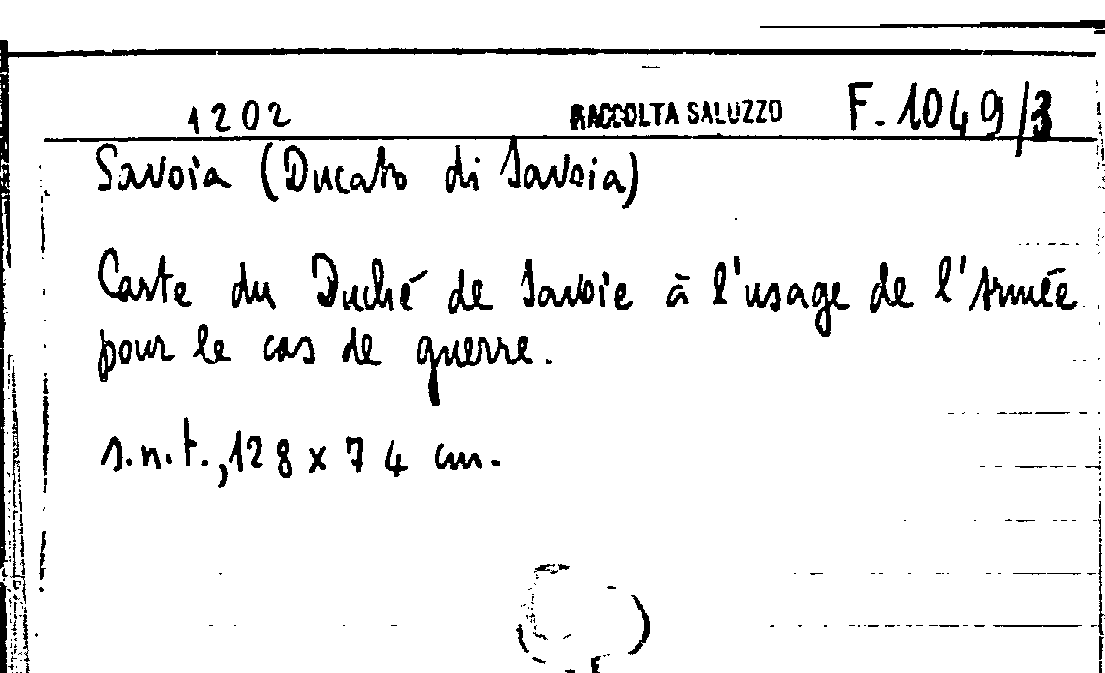 1202 RACCOLTA SALUZZO F. 1049/3
Savoia (Ducato di Savoia)
Carte du Duché de Savoie à l'usage de l'Armée
pour le cas de guerre.
s.n.t., 128 x 74 cm.